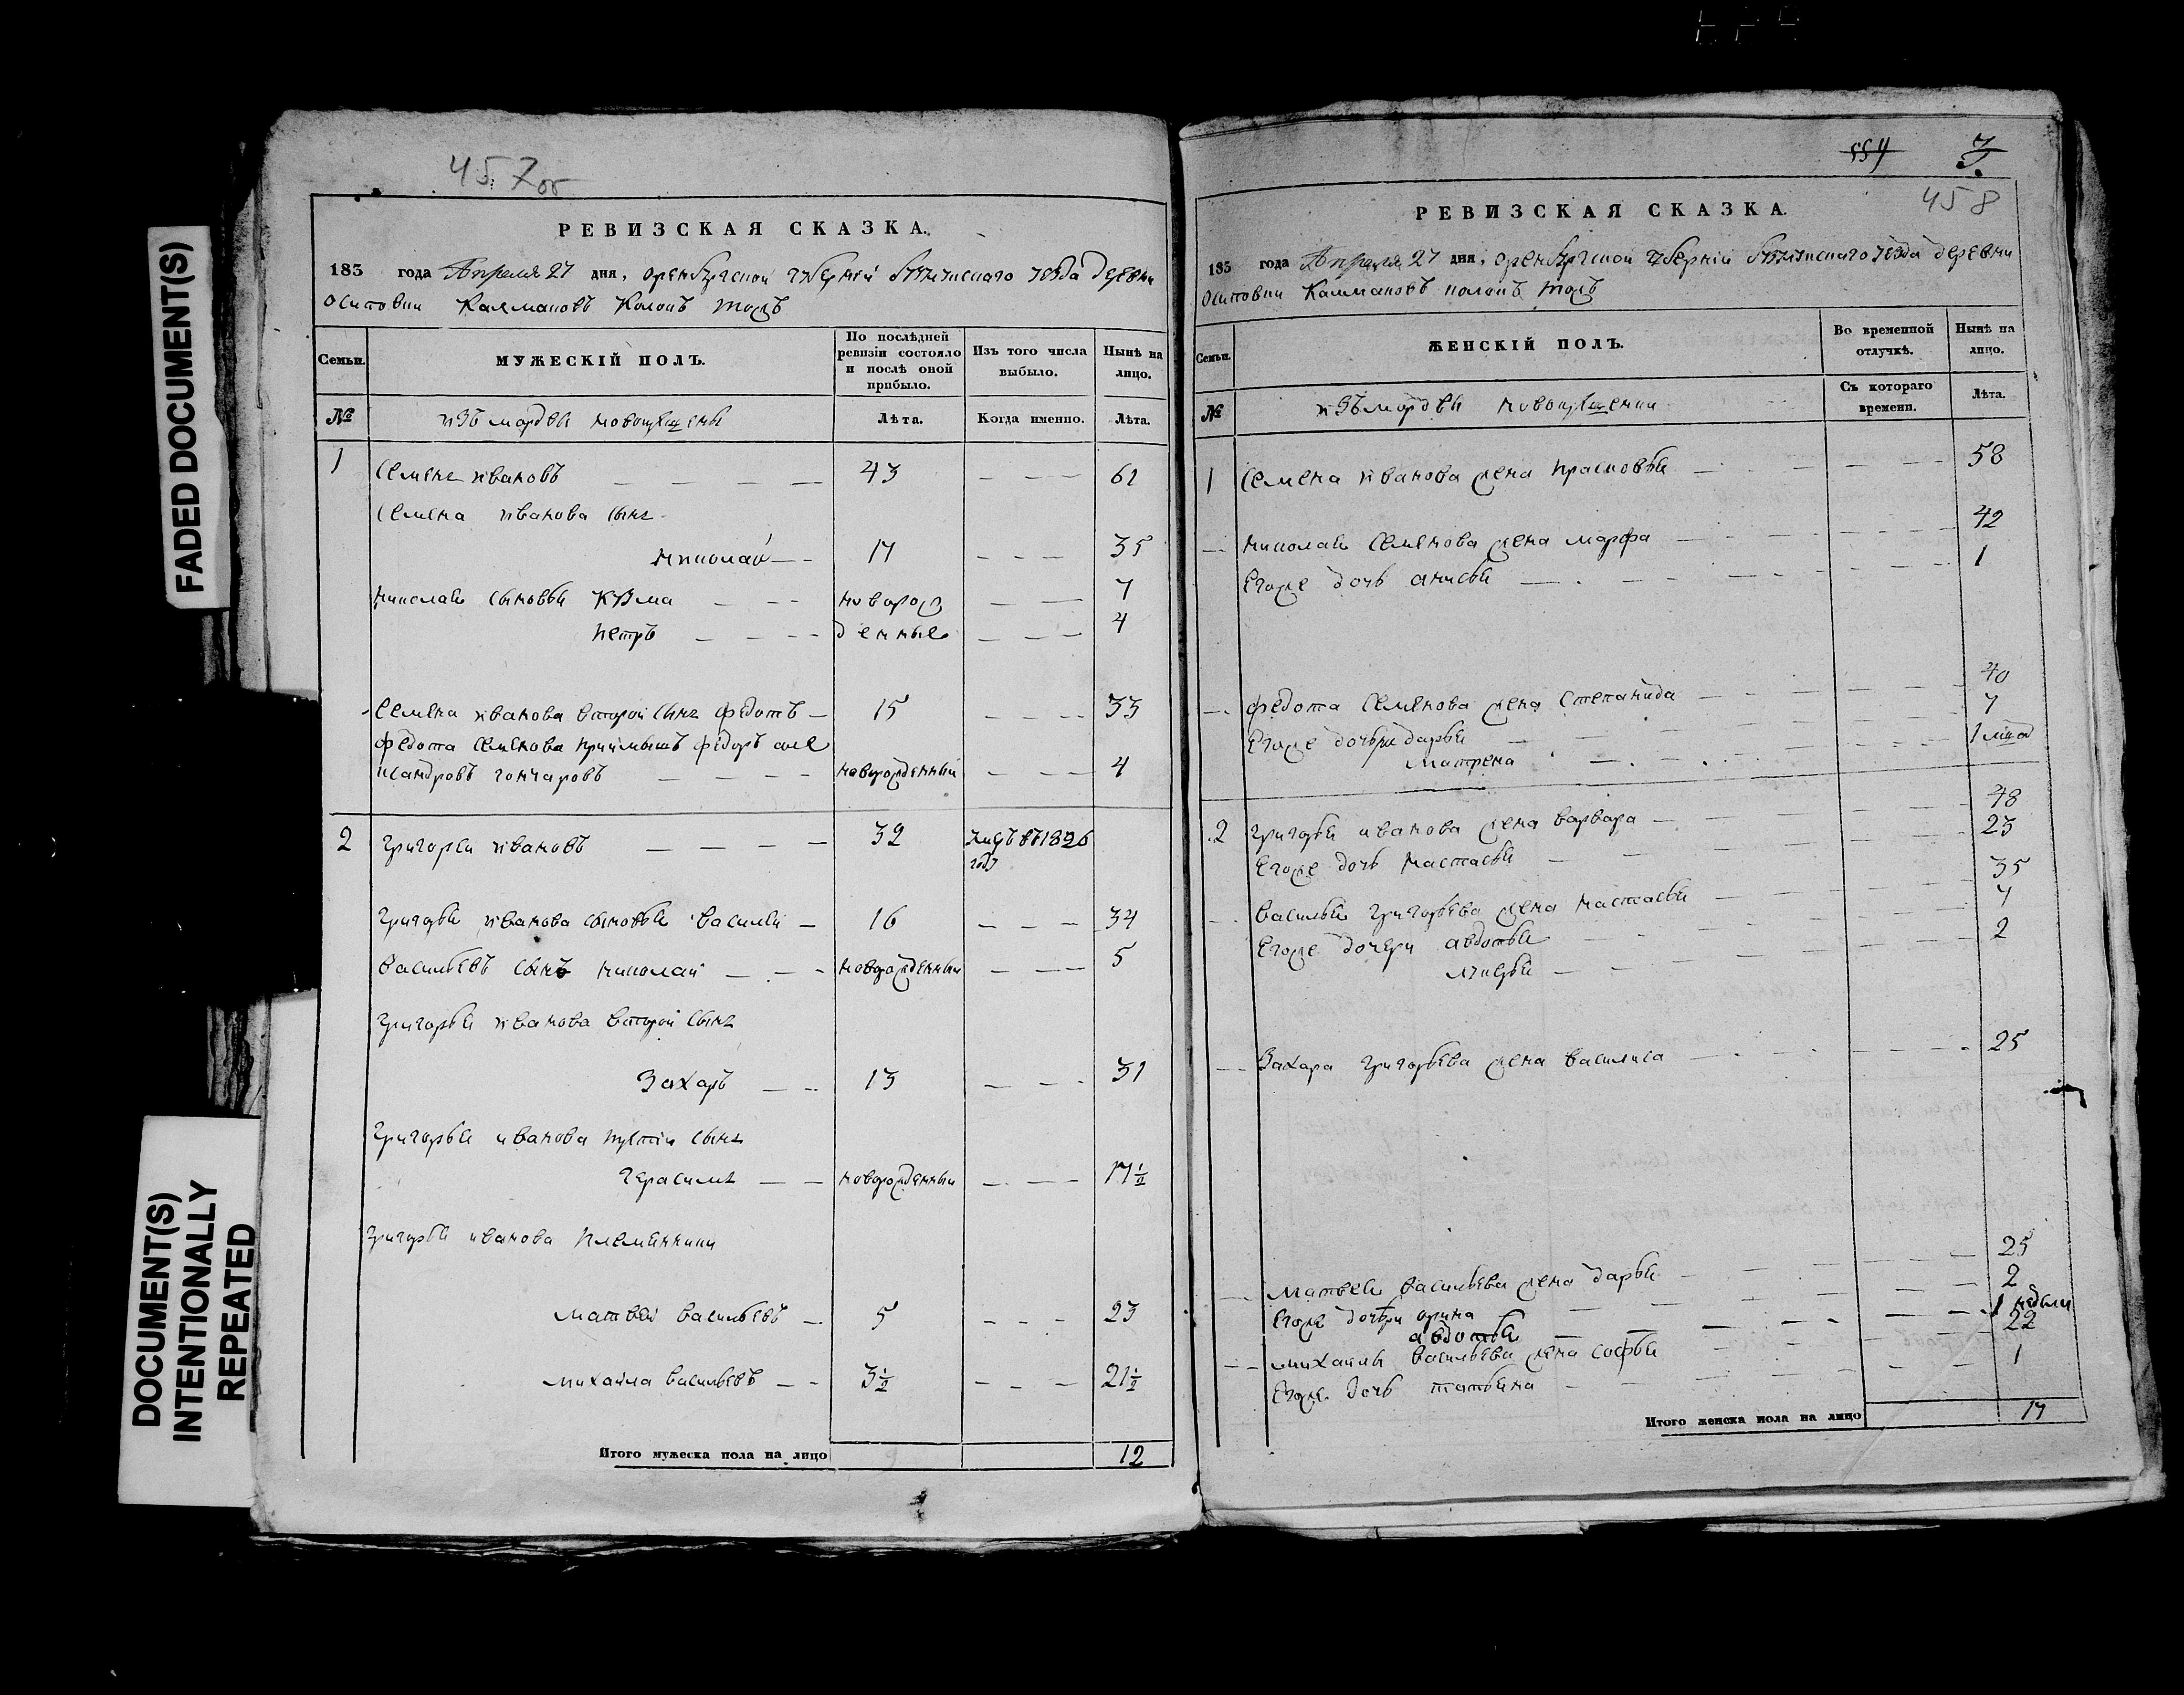 FADED DOCUMENT(S)
DOCUMENT(S)
INTENTIONALLY
REPEATED
457об
РЕВИЗСКАЯ СКАЗКА.
183 года Апреля 27 дня, оренбургской губернiи бузулукскаго уезда деревни
Осиповки Калмановъ Колокъ тожъ
Семьи.
МУЖЕСКIЙ ПОЛЪ.
По послѣдней ревизiи состояло и послѣ оной прибыло.
Изъ того числа выбыло.
Нынѣ на лицо.
№ изъ мордвы новокрещены Лѣта. Когда именно. Лѣта.
1 Семенъ ивановъ — — — — 43 — — — 61
Семена иванова сынъ
николай — — 17 — — — 35
николая сыновья Кузма — — — новорож — — 7
петръ — — — — денные — — — 4
Семена иванова второй сынъ федотъ — 15 — — — 33
федота Семенова приимышъ федоръ але
ксандровъ гончаровъ — — — — новорожденный — — — 4
2 григореи ивановъ — — — — 32 умеръ въ 1826
году
григорья иванова сыновья василеи — 16 — — — 34
васильевъ сынъ николаи — — — новорожденныи — — — 5
григорья иванова второи сынъ
Захаръ — — 13 — — — 31
григорья иванова третiи сынъ
герасимъ — — новорожденныи — — — 17½
григорья иванова племянники
матвеи васильевъ — 5 — — — 23
михаила васильевъ — — 3½ — — — 21½
Итого мужеска пола на лицо 12
554 7
458
РЕВИЗСКАЯ СКАЗКА.
183 года Апреля 27 дня, оренбургской губернiи бузулукскаго уезда деревни
Осиповки Калмановъ колокъ тожъ
Семьи.
ЖЕНСКIЙ ПОЛЪ.
Во временной отлучкѣ.
Нынѣ на лицо.
Съ котораго времени.
Лѣта.
№ изъ мордвы новокрещенки
1 Семена иванова жена прасковья — — — — — 58
— николая Семенова жена марфа — — — — 42
Егоже дочь анисья — — — — 1
— федота Семенова жена Степанида — — — — 40
Егоже дочери дарья — — — 7
Матрена — — — 1 мца
2 григорья иванова жена варвара — — — 48
Егоже дочь настасья — — — 23
— василья григорьева жена настасья — — — 35
Егоже дочери авдотья — — — 7
лукерья — — — 2
— Захара григорьева жена василиса — — — 25
— матвея васильева жена дарья — — — 25
Егоже дочери орина — — — 2
авдотья — — — 1 недели
— михаилы васильева жена софья — — — 22
Егоже дочь татьяна — — — 1
Итого женска пола на лицо 17